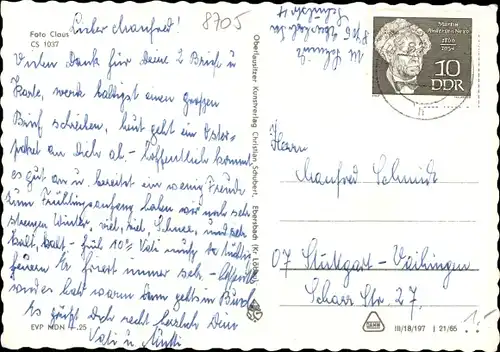 Lieber Manfred!
8705
Foto Claus
CS 1037
Vielen Dank für Deine 2 Briefe u
Karte, werde baldigst einen großen
Brief schreiben, heut geht ein Oster-
paket an Dich ab. - Hoffentlich kommt
es gut an u bereitet ein wenig Freude
zum Frühlingsanfang haben wir noch sehr
strengen Winter, viel, viel Schnee, und sehr
kalt, kalt - früh 10° Vati muß tüchtig
feuern Er friert immer sehr - hoffentlich
wird es bald warm dann geht's in
Es grüßt Dich recht herzlich Deine
Vati u Mutti
EVP MDN .25
Oberlausitzer Kunstverlag Christian Schubert, Ebersbach (Kr. Löbau)
Martin
Andersen Nexö
1869
1954
10
DDR
Herrn
Manfred Schmidt
07 Stuttgart-Vaihingen
Scharr Str 27.
III/18/197 I 21/65